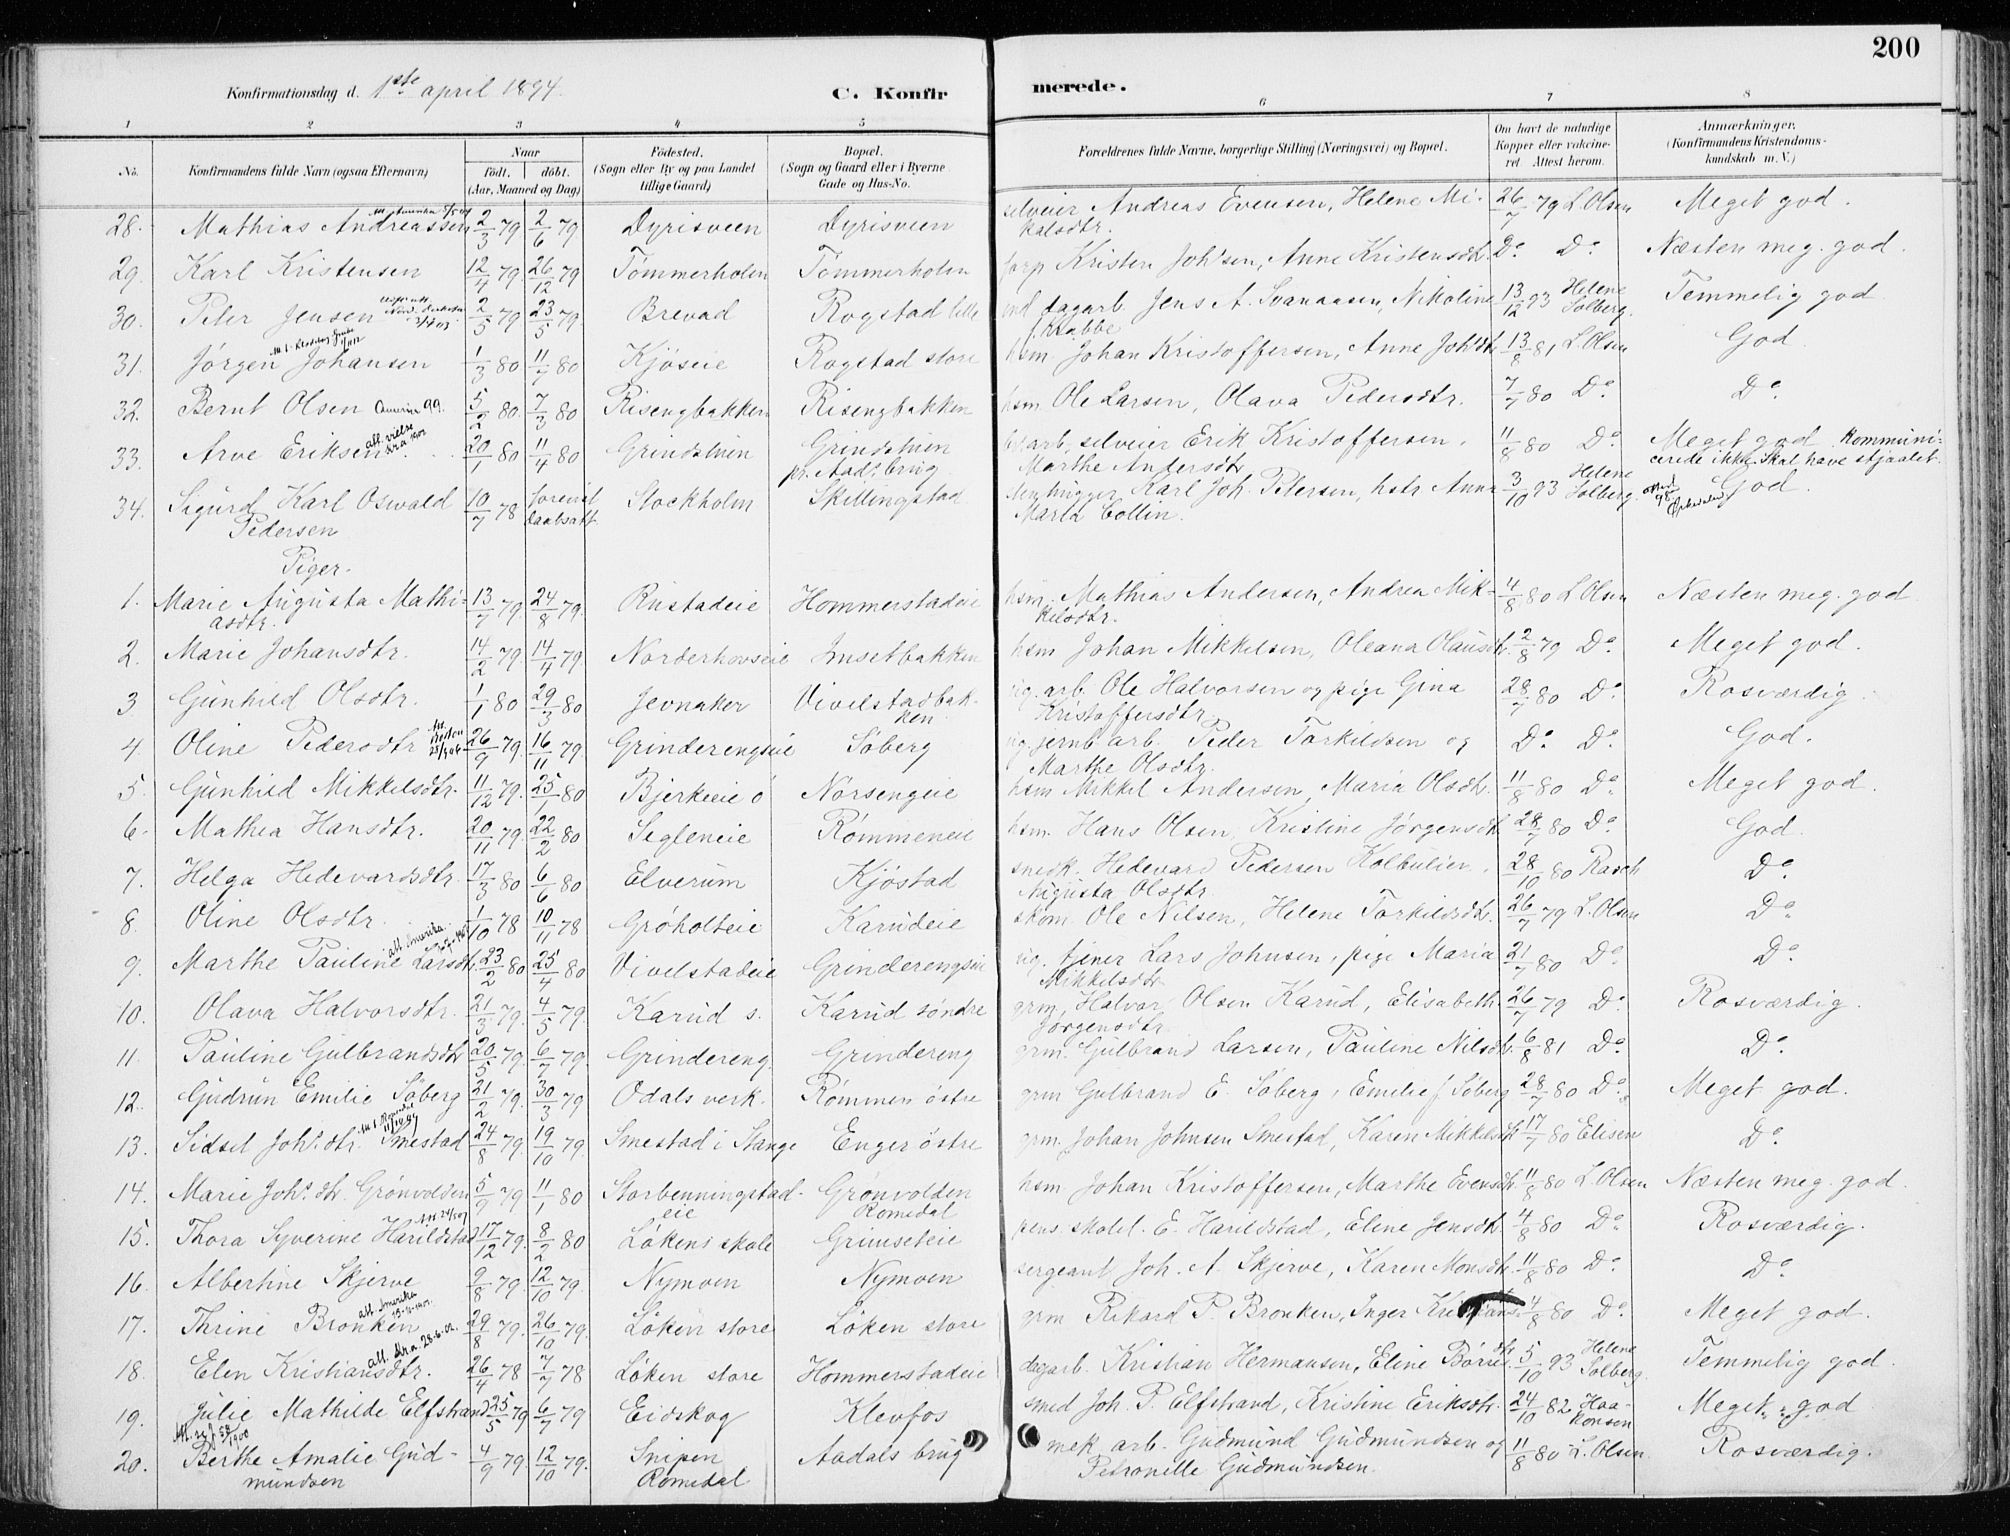 200
Konfirmationsdag d. 1ste april 1894. C. Konfirmerede.
1 2 3 4 5 6 7 8
No. Konfirmandens fulde Navn (ogsaa Efternavn) Naar født. døbt. (Aar, Maaned og Dag) Födested. (Sogn eller By og paa Landet tillige Gaard) Bopæl. (Sogn og Gaard eller i Byerne Gade og Hus-No. Forældrenes fulde Navne, borgerlige Stilling (Næringsvei) og Bopæl. Om havt de naturlige Kopper eller vakcineret. Attest herom. Anmærkninger. (Konfirmandens Kristendomskundskab m. V.)
28. Mathias Andreassen 2/3 79 2/6 79 Dyrisveen Dyrisveen selveier Andreas Evensen, Helene Mikalsdtr. 26/7 79 L. Olsen Meget god.
29. Karl Kristensen 12/4 79. 26/12 79 Tømmerholm Tømmerholm forp Kristen Joh'sen, Anne Kristensdtr. Do Do Næsten meg. god.
30. Peter Jensen 2/5 79 23/5 79. Brevad Rogstad lille ind dagarb. Jens A. Svanaasen, Nikoline f. Krabbe 13/12 93 Helene Solberg. Temmelig god
31. Jørgen Johansen 1/3 80 11/7 80 Kjöseie Rogstad store hsm. Johan Kristoffersen, Anne Joh'dtr 13/8 81 L. Olsen God
32. Bernt Olsen Amerika 99. 5/2 80. 7/3 80 Risengbakken Risengbakken hsm. Ole Larsen, Olava Pedersdtr. 7/7 80 Do. Do.
33. Arve Eriksen att. vielse 20/1 80 11/4 80 Grindstuen Grindstuen pr. Aad. brug arb. selveier Erik Kristoffersen, Marthe Andersdtr 11/8 80 Do. Meget god kommunicerede ikke. Skal have stjaalet.
34. Sigurd Karl Oswald Pedersen 10/7 78 forevist daabsatt. Stockholm Skillingstad stenhugger Karl Joh. Petersen, hstr Anna Maria Collin. 3/10 93 Helene Solberg. God.
Piger.
1. Marie Augusta Mathiasdtr. 13/7 79. 24/8 79. Rustadeie Hommerstadeie hsm. Mathias Andersen, Andrea Mikkelsdtr. 4/8 80 L Olsen Næsten meg. god
2. Marie Johansdtr. 14/2 79. 14/4 79. Norderhovseie Insetbakken hsm Johan Mikkelsen, Oleana Olausdtr. 2/8 79 Do. Meget god.
3 Gunhild Olsdtr. 1/1 80 29/3 80 Jevnaker Vivelstadbakken. ug. arb. Ole Halvorsen og pige Gina Kristoffersdtr 28/7 80 Do. Rosværdig
4. Oline Pedersdtr 26/9 79. 16/11 79. Grinderengseie Søberg ug. jernb. arb. Peder Torkildsen og Marthe Olsdtr. Do. Do. God.
5. Gunhild Mikkelsdtr. 11/12 79. 25/1 80 Bjerkeeie ö Norsengeie hsm Mikkel Andersen, Maria Olsdtr. 11/8 80 Do. Meget god.
6. Mathea Hansdtr. 20/11 79. 22/2 80 Segleneie Rømmeneie hsm. Hans Olsen, Kristine Jørgensdtr 28/7 80 Do. God.
7. Helga Hedevardsdtr. 17/3 80 6/6 80 Elverum Kjöstad snedk. Hedevard Pedersen Kolbulien, Augusta Olsdtr. 28/10 80 Rasch Do.
8. Oline Olsdtr. 1/10 78 10/11 78 Grøholteie Karudeie skom. Ole Nilsen, Helene Torkildsdtr. 26/7 79 L. Olsen Do.
9. Marthe Pauline Larsdtr. att. Amerika 23/2 80 25/4 80 Vivelstadeie Grinderengseie ug. tjener Lars Johnsen, pige Maria Mikkelsdtr 21/7 80 Do. Do.
10. Olava Halvorsdtr. 21/3 79. 4/5 79. Karud s. Karud søndre grm, Halvor Olsen Karud, Elisabeth Jørgensdtr 26/7 79 Do. Rosværdig.
11. Pauline Gulbrandsdtr 20/5 79. 6/7 79. Grindereng. Grindereng grm. Gulbrand Larsen, Pauline Nilsdtr. 6/8 81 Do. Do.
12. Gudrun Emilie Søberg 21/2 79. 30/3 79 Odals verk. Rømmen østre grm Gulbrand E. Søberg, Emilie f Søberg 28/7 80 Do. Meget god.
13. Sidsel Joh'.dtr. Smestad 24/8 79. 19/10 79. Smestad i Stange Enger östre grm. Johan Johnsen Smestad, Karen Mikkelsdtr 17/7 80 Elisen Do.
14. Marie Joh'.dtr. Grönvolden 5/9 79 11/1 80 Storbenningstadeie Grønvolden Romedal hsm Johan Kristoffersen, Marthe Evensdtr 11/8 80 L. Olsen Næsten meg. god.
15. Thora Syverine Harildstad 17/12 79. 8/2 80 Løkens skole Grimseteie pens. skolel. E. Harildstad, Eline Jensdtr. 4/8 80 Do. Rosværdig.
16. Albertine Skjerve 9/8 79. 12/10 79. Nymoen Nymoen sergeant Joh. A. Skjerve, Karen Monsdtr. 11/8 80 Do. Do.
17. Thrine Bronken att. Amerika 29/8 79. 26/10 79. Løken store Løken store grm Rikard P. Bronken, Inger 4/8 80 Do. Meget god.
18. Elen Kristiansdtr. att. Kra. 28-6-02. 26/4 78 7/7 78 Løken store Hommerstadeie dagarb. Kristian Hermansen, Eline Børresdtr. 5/10 93 Helene Solberg. Temmelig god.
19. Julie Mathilde Elfstrand 25/5 79 6/7 79 Eidskog Klevfos smed Joh. P. Elfstrand, Kristine Eriksdtr. 24/10 82 Haakonsen Meget god
20. Berthe Amalie Gudmundsen 4/9 79. 12/10 79. Snipen Romedal Aadals brug mek arb. Gudmund Gudmundsen og Petronelle Gudmundsen. 11/8 80 L. Olsen. Rosværdig.